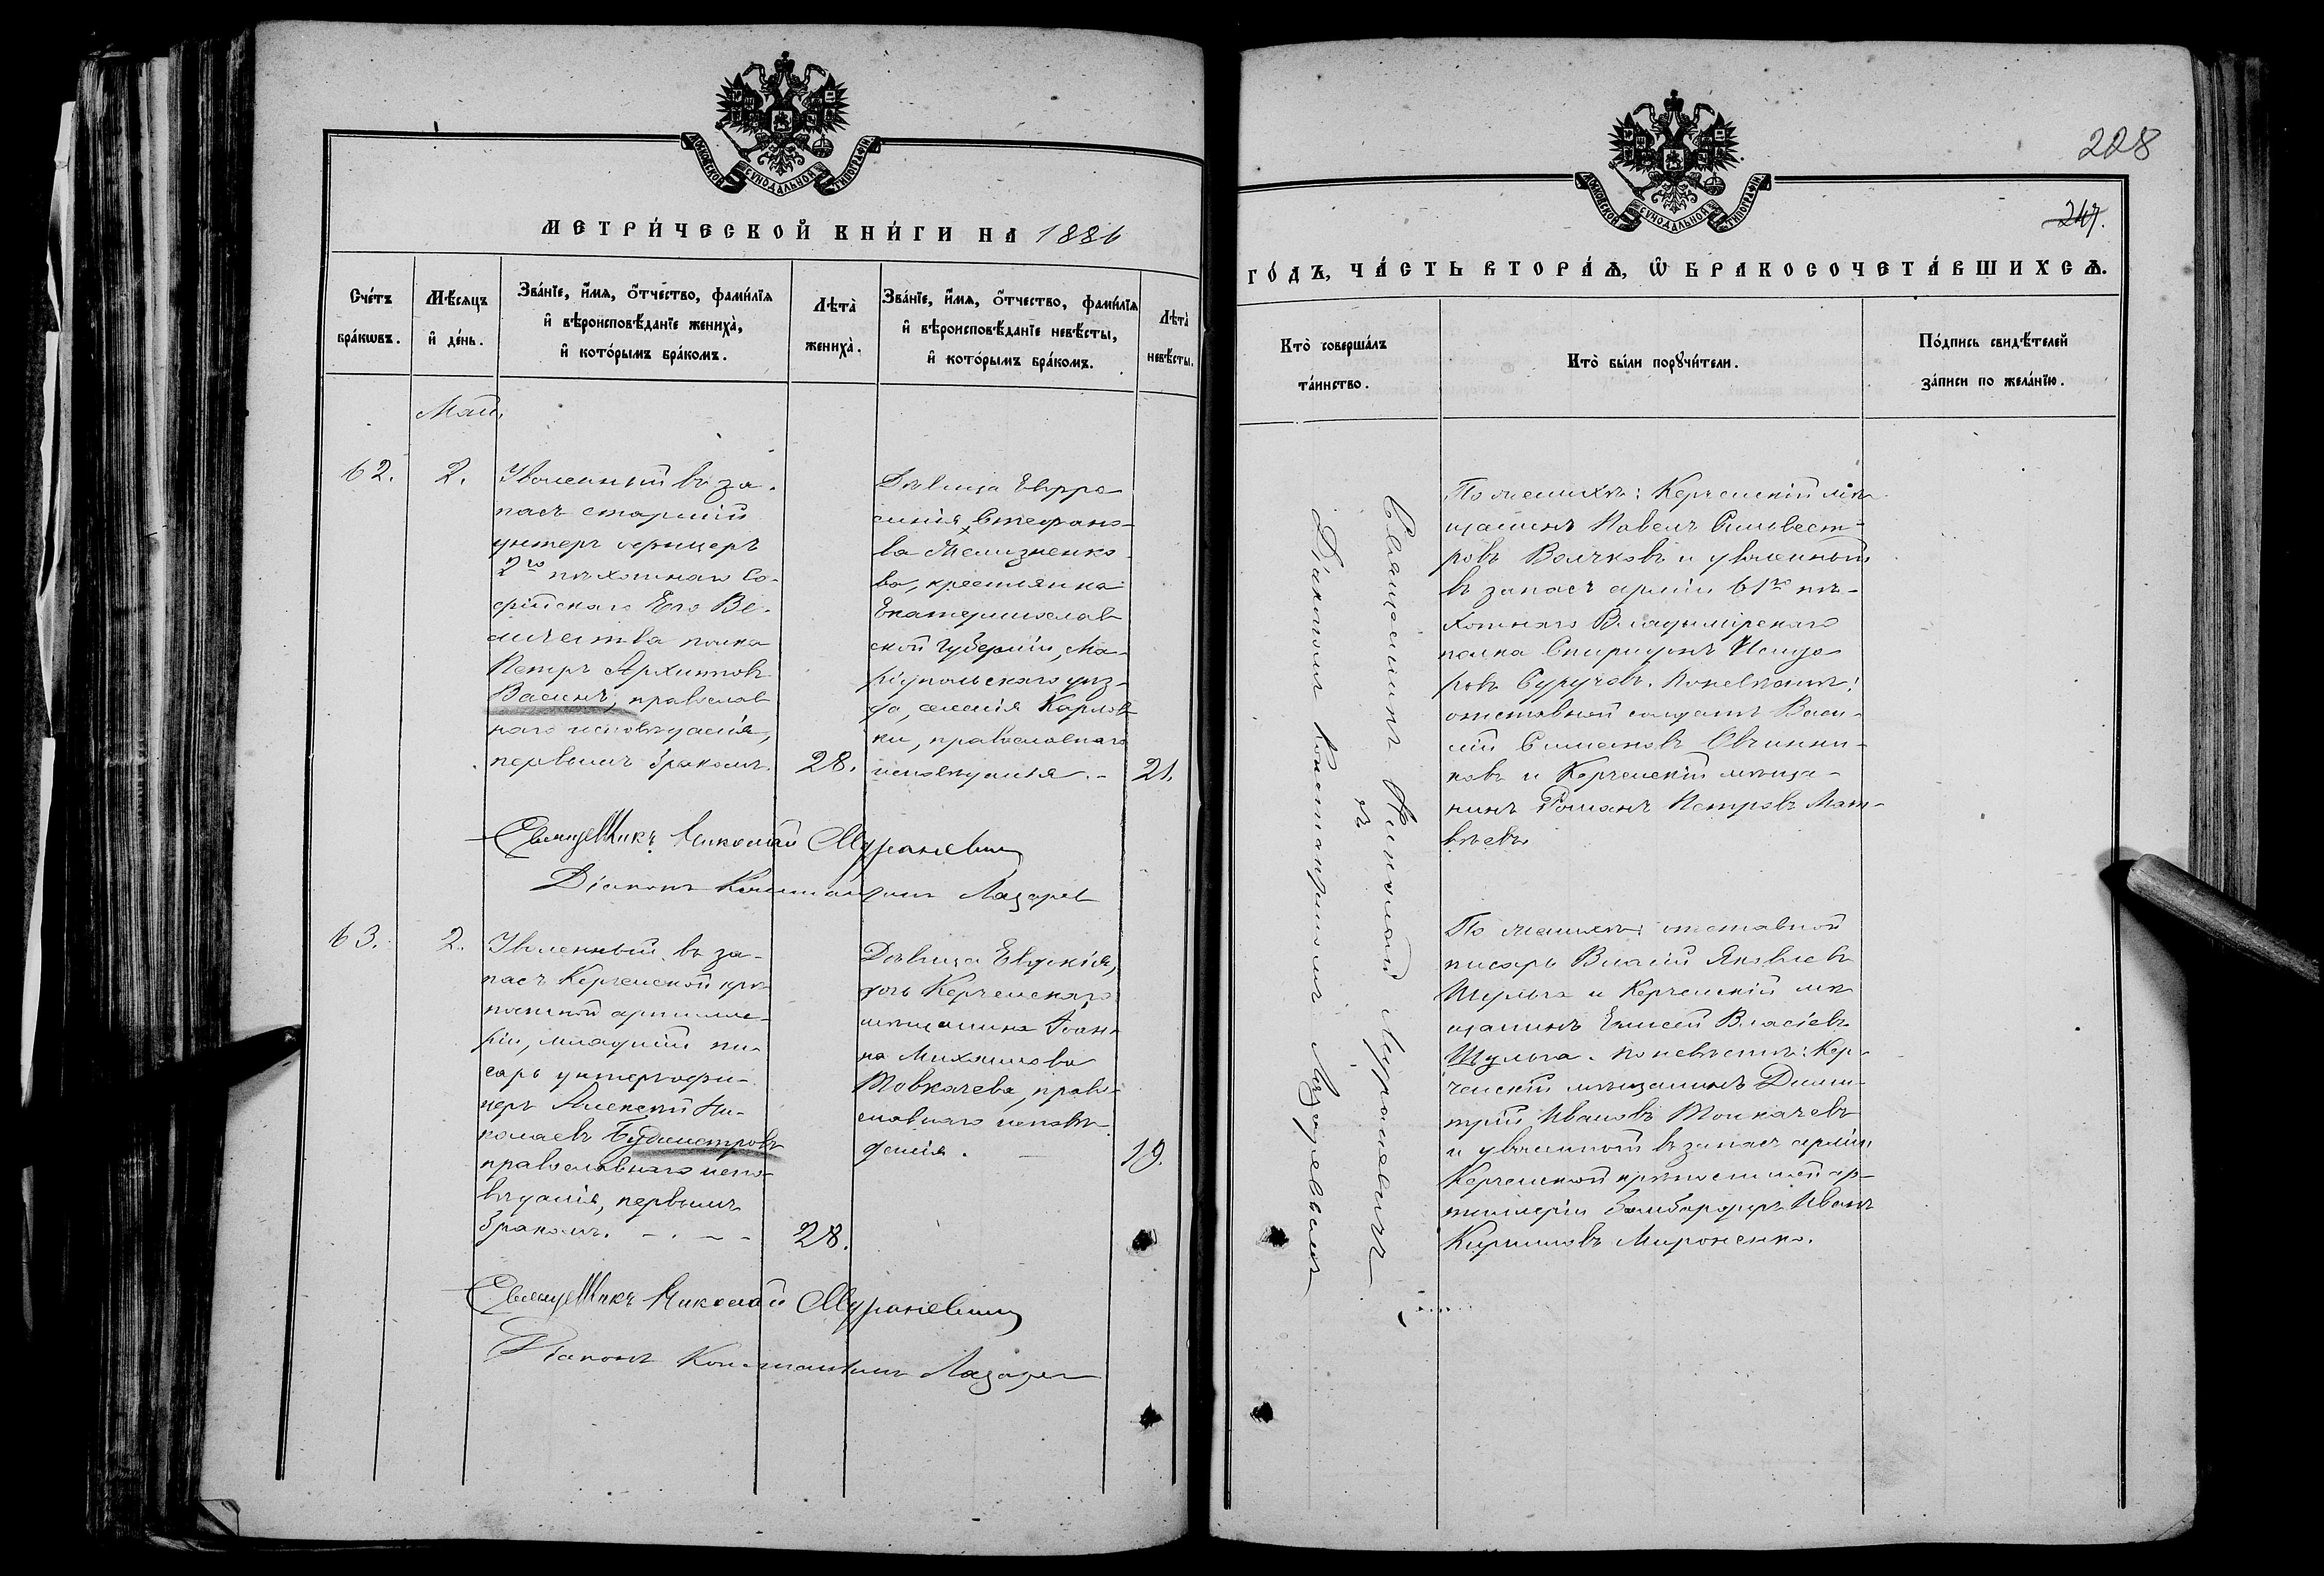 МОСКОВСКОЙ СѴНОДАЛЬНОЙ ТИПОГРАФІИ
МЕТРИ́ЧЕСКОЙ КНИ́ГИ НА 1886
Сче́тъ бра́кѡвъ.
Мѣ́сяцъ и҆ де́нь.
Зва́нїе, и҆́мѧ, ѻ҆́тчество, фами́лїѧ
и҆ вѣроисповѣ́данїе жениха̀,
и҆ кото́рымъ бра́комъ.
Лѣта̀ жениха̀.
Зва́нїе, и҆́мѧ, ѻ҆́тчество, фами́лїѧ
и҆ вѣроисповѣ́данїе невѣ́сты,
и҆ кото́рымъ бра́комъ.
Лѣта̀ невѣ́сты.
Май
62.
2.
Уволенный въ за-
пасъ старшій
унтеръ офицеръ
2го пѣхотнаго Со-
фійскаго Его Ве-
личества полка
Петръ Архиповъ
Васинъ, православ
наго исповѣданія,
первымъ бракомъ.
28.
Дѣвица Евфро-
синія Стефано-
ва Желизненко-
ва, крестьянка
Екатеринослав
ской губерніи, Ма-
ріупольскаго уѣз-
да, селенія Карлов
ки, православнаго
исповѣданія. -
21.
Священникъ Николай Мураневичъ
Діаконъ Константинъ Лазарев
63.
2.
Уволенный въ за-
пасъ Керченской крѣ
постной артилле-
ріи, младшій пи-
сарь унтерофи-
церъ Алексѣй Ни-
колаевъ Будиместровъ
православнаго испо-
вѣданія, первымъ
бракомъ. - . - -
28.
Дѣвица Евдокія,
дочь Керченскаго
мѣщанина Іоан-
на Михаилова
Товкачева, право-
славнаго исповѣ-
данія. -
19.
Священникъ Николай Мураневичъ
Діаконъ Константинъ Лазарев
208
247.
МОСКОВСКОЙ СѴНОДАЛЬНОЙ ТИПОГРАФІИ
ГО́ДЪ, ЧА́СТЬ ВТОРА́Ѧ, Ѡ҆ БРАКОСОЧЕТА́ВШИХСѦ.
Кто̀ соверша́лъ
та́инство.
Кто̀ были порꙋчи́тели.
По́дпись свидѣ́телей
за́писи по жела́нїю.
Священникъ Николай Мураневичъ
съ
Діакономъ Константиномъ Лазаревымъ
По женихѣ: Керченскій мѣ
щанинъ Павелъ Сильвест-
ровъ Волчковъ и уволенный
въ запасъ арміи 61го пѣ-
хотнаго Владимірскаго
полка Спиридонъ Исидо
ровъ Суручев. По невѣстѣ:
отставной солдатъ Васи-
лій Симоновъ Овчинни-
ковъ и Керченскій мѣща-
нинъ Романъ Петровъ Мат-
вѣевъ
По женихѣ: отставной
писарь Власій Яковлевъ
Шульга и Керченскій мѣ
щанинъ Елисей Власіевъ
Шульга. По невѣстѣ: Кер-
ченскій мѣщанинъ Дими-
трій Ивановъ Толкачевъ
и уволенный въ запасъ арміи
Керченской крѣпостной ар-
тиллеріи бомбардиръ Иванъ
Кирилловъ Мироненко.